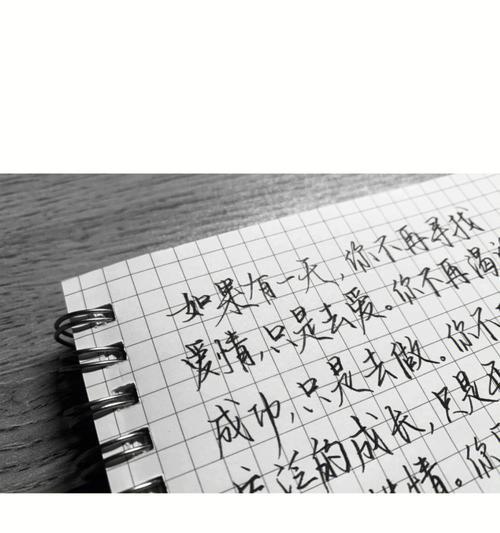 如果有一天,你不再寻找
爱情,只是去爱。你不再渴
成功,只是去做。你不
泛的成长,只是
性情。你